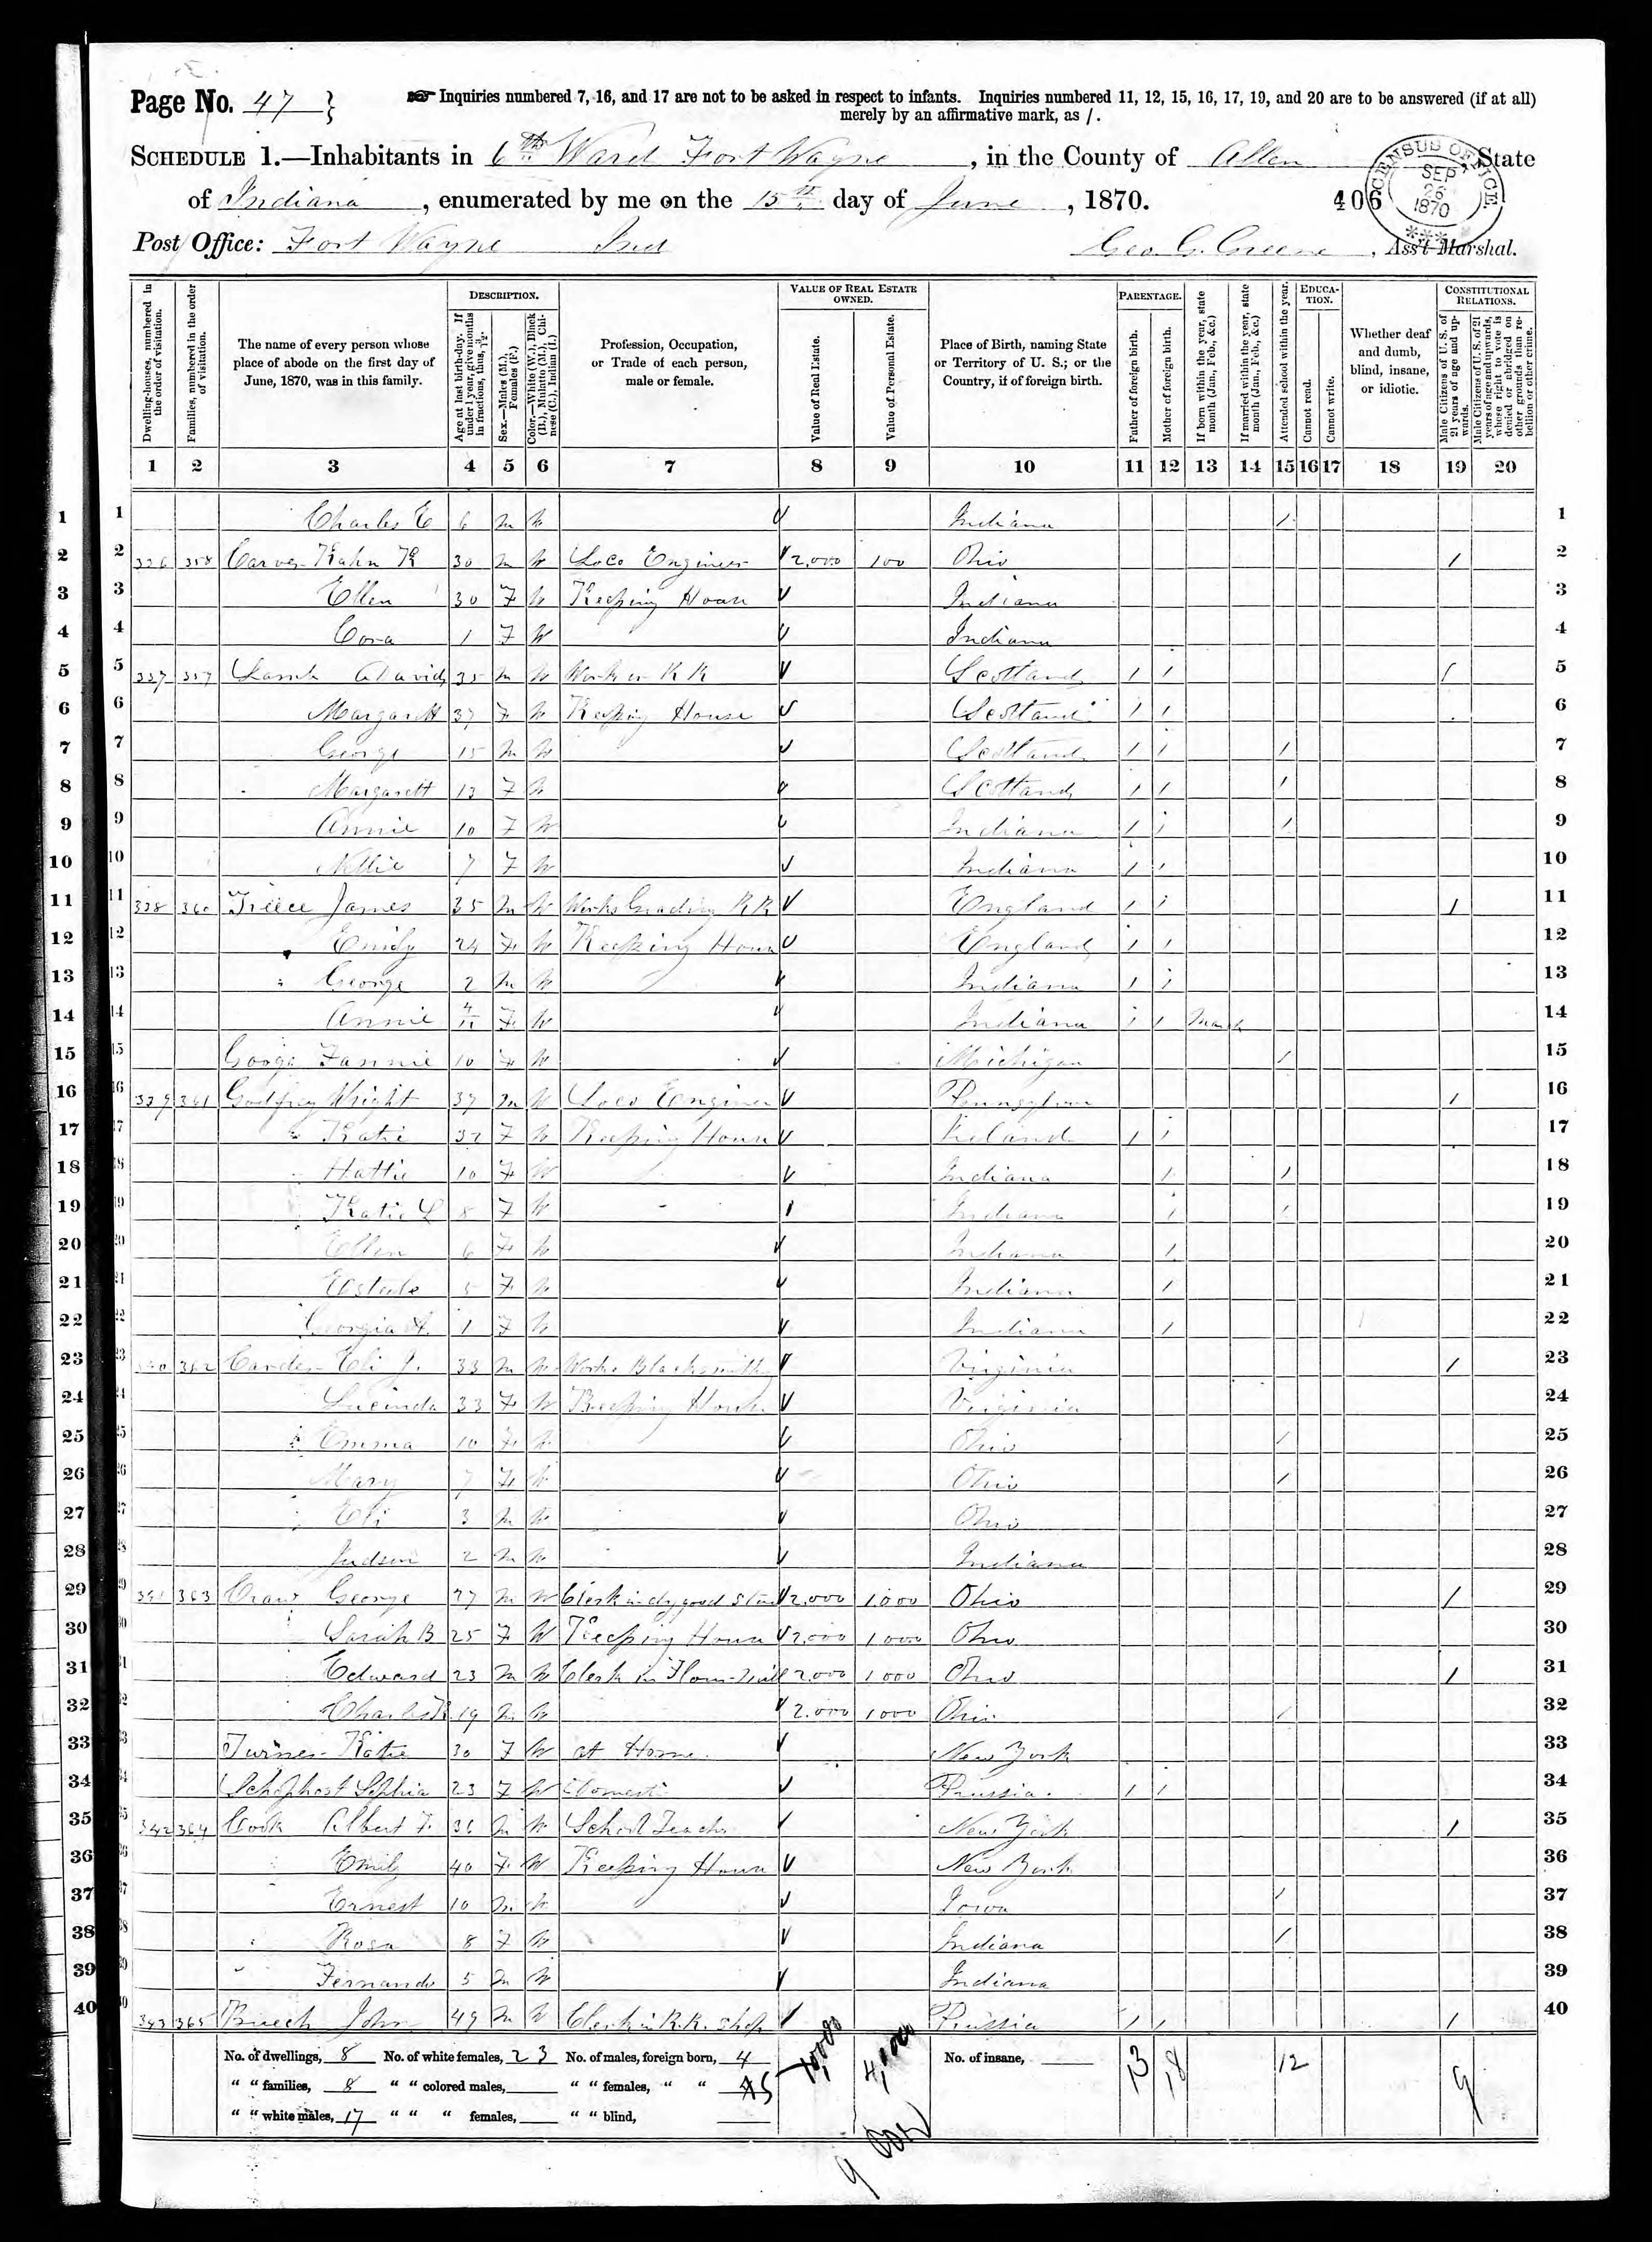 Page No. 47 }
☞ Inquiries numbered 7, 16, and 17 are not to be asked in respect to infants. Inquiries numbered 11, 12, 15, 16, 17, 19, and 20 are to be answered (if at all)
merely by an affirmative mark, as /.
SCHEDULE 1.—Inhabitants in 6th Ward Fort Wayne, in the County of Allen State
of Indiana, enumerated by me on the 15th day of June, 1870. 406
CENSUS OFFICE. SEP 26 1870
Post Office: Fort Wayne Ind Geo. G. Greene, Ass't Marshal.
Dwelling-houses, numbered in the order of visitation.
Families, numbered in the order of visitation.
The name of every person whose place of abode on the first day of June, 1870, was in this family.
DESCRIPTION.
Age at last birth-day. If under 1 year, give months in fractions, thus, 3/12.
Sex.—Males (M.), Females (F.)
Color.—White (W.), Black (B.), Mulatto (M.), Chinese (C.), Indian (I.)
Profession, Occupation, or Trade of each person, male or female.
VALUE OF REAL ESTATE OWNED.
Value of Real Estate.
Value of Personal Estate.
Place of Birth, naming State or Territory of U. S.; or the Country, if of foreign birth.
PARENTAGE.
Father of foreign birth.
Mother of foreign birth.
If born within the year, state month (Jan., Feb., &c.)
If married within the year, state month (Jan., Feb., &c.)
Attended school within the year.
EDUCATION.
Cannot read.
Cannot write.
Whether deaf and dumb, blind, insane, or idiotic.
CONSTITUTIONAL RELATIONS.
Male Citizens of U. S. of 21 years of age and upwards.
Male Citizens of U. S. of 21 years of age and upwards, whose right to vote is denied or abridged on other grounds than rebellion or other crime.
1 2 3 4 5 6 7 8 9 10 11 12 13 14 15 16 17 18 19 20
1 1 Charles E 6 M W Indiana / 1
2 2 336 358 Carver 30 M W Loco Engineer 2,000 100 Ohio / 2
3 3 Ellen 30 F W Keeping House Indiana 3
4 4 Cora 1 F W Indiana 4
5 5 337 359 Lamb David 35 M W Work on R R Scotland / / / 5
6 6 Margarett 37 F W Keeping House Scotland / / 6
7 7 George 15 M W Scotland / / / 7
8 8 Margarett 13 F W Scotland / / / 8
9 9 Annie 10 F W Indiana / / / 9
10 10 Nellie 7 F W Indiana / / 10
11 11 338 360 Treece James 35 M W Works Grading RR England / / / 11
12 12 Emily 24 F W Keeping House England / / 12
13 13 George 2 M W Indiana / / 13
14 14 Annie 4/12 F W Indiana / / March 14
15 15 Fannie 10 F W Michigan / 15
16 16 339 361 Godfrey Wright 37 M W Loco Engineer / 16
17 17 Katie 32 F W Keeping House Ireland / / 17
18 18 Hattie 10 F W Indiana / / 18
19 19 Katie L 8 F W Indiana / / 19
20 20 Ellen 6 F W Indiana / 20
21 21 5 F W Indiana / 21
22 22 Georgia A. 1 F W Indiana / 22
23 23 340 362 Eli J. 33 M W Works Blacksmith Virginia / 23
24 24 Lucinda 33 F W Keeping House Virginia 24
25 25 Emma 10 F W Ohio / 25
26 26 Mary 7 F W Ohio / 26
27 27 Eli 3 M W Ohio 27
28 28 Judson 2 M W Indiana 28
29 29 341 363 Craw George 27 M W Clerk in dry good Store 2,000 1,000 Ohio / 29
30 30 Sarah B 25 F W Keeping House 2,000 1000 Ohio 30
31 31 Edward 23 M W Clerk in Flour-Mill 2,000 1000 Ohio / 31
32 32 19 M W 2.000 1000 Ohio / 32
33 33 Turner Katie 30 F W at Home. New York 33
34 34 Sophia 23 F W Domestic Prussia. / / 34
35 35 342 364 Cook Albert F. 36 M W School Teacher New York / 35
36 36 Emily 40 F W Keeping House New York 36
37 37 Ernest 10 M W Iowa / 37
38 38 Rosa 8 F W Indiana / 38
39 39 Fernando 5 M W Indiana 39
40 40 343 365 John 49 M W Clerk in R.R. Shop Prussia / / / 40
No. of dwellings, 8 No. of white females, 23 No. of males, foreign born, 4 No. of insane,
" " families, 8 " " colored males, " " females, " " 5
" " white males, 17 " " " females, " " blind,
13 18 12 9